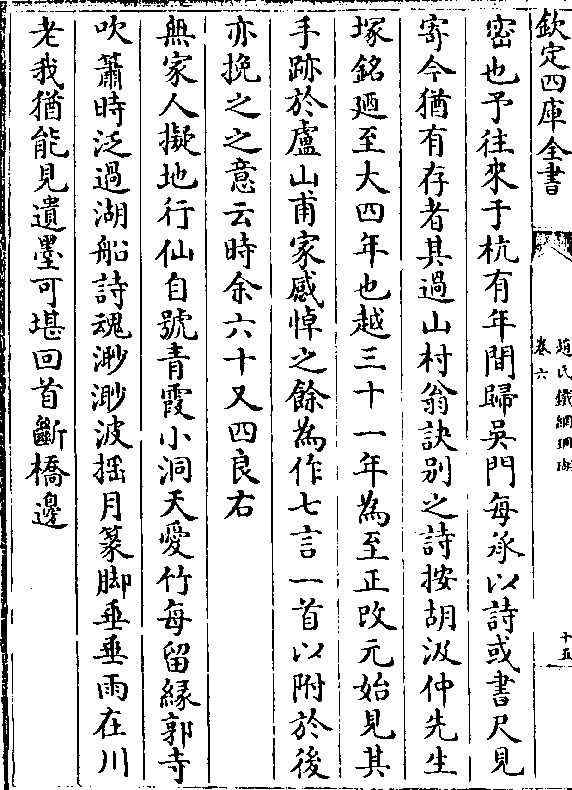 欽定四庫全書
趙氏鐵網珊瑚
卷六
十五
密也予往來于杭有年間歸吳門每承以詩或書尺見
寄今猶有存者其過山村翁訣別之詩按胡汲仲先生
塚銘廼至大四年也越三十一年為至正改元始見其
手跡於盧山甫家感悼之餘為作七言一首以附於後
亦挽之之意云時余六十又四良右
無家人擬地行仙自號青霞小洞天愛竹每留緣郭寺
吹簫時泛過湖船詩魂渺渺波揺月篆脚垂垂雨在川
老我猶能見遺墨可堪回首斷橋邊